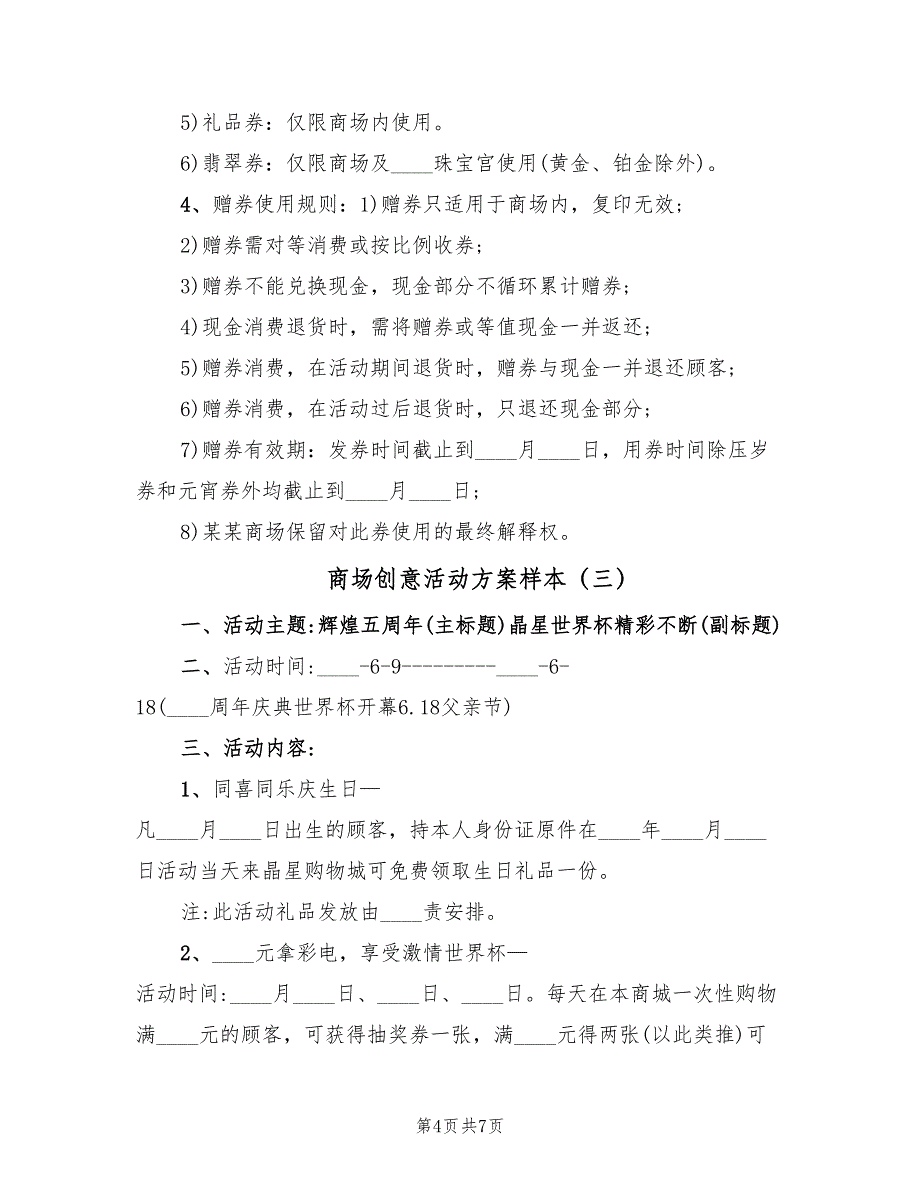 5)礼品券：仅限商场内使用。
6)翡翠券：仅限商场及____珠宝宫使用(黄金、铂金除外)。
4、赠券使用规则：1)赠券只适用于商场内，复印无效;
2)赠券需对等消费或按比例收券;
3)赠券不能兑换现金，现金部分不循环累计赠券;
4)现金消费退货时，需将赠券或等值现金一并返还;
5)赠券消费，在活动期间退货时，赠券与现金一并退还顾客;
6)赠券消费，在活动过后退货时，只退还现金部分;
7)赠券有效期：发券时间截止到____月____日，用券时间除压岁
券和元宵券外均截止到____月____日;
8)某某商场保留对此券使用的最终解释权。
商场创意活动方案样本（三）
一、活动主题:辉煌五周年(主标题)晶星世界杯精彩不断(副标题)
二、活动时间:____-6-9---------____-6-
18(____周年庆典世界杯开幕6.18父亲节)
三、活动内容:
1、同喜同乐庆生日—
凡____月____日出生的顾客，持本人身份证原件在____年____月____
日活动当天来晶星购物城可免费领取生日礼品一份。
注:此活动礼品发放由____责安排。
2、____元拿彩电，享受激情世界杯—
活动时间:____月____日、____日、____日。每天在本商城一次性购物
满____元的顾客，可获得抽奖券一张，满____元得两张(以此类推)可
第4页共7页